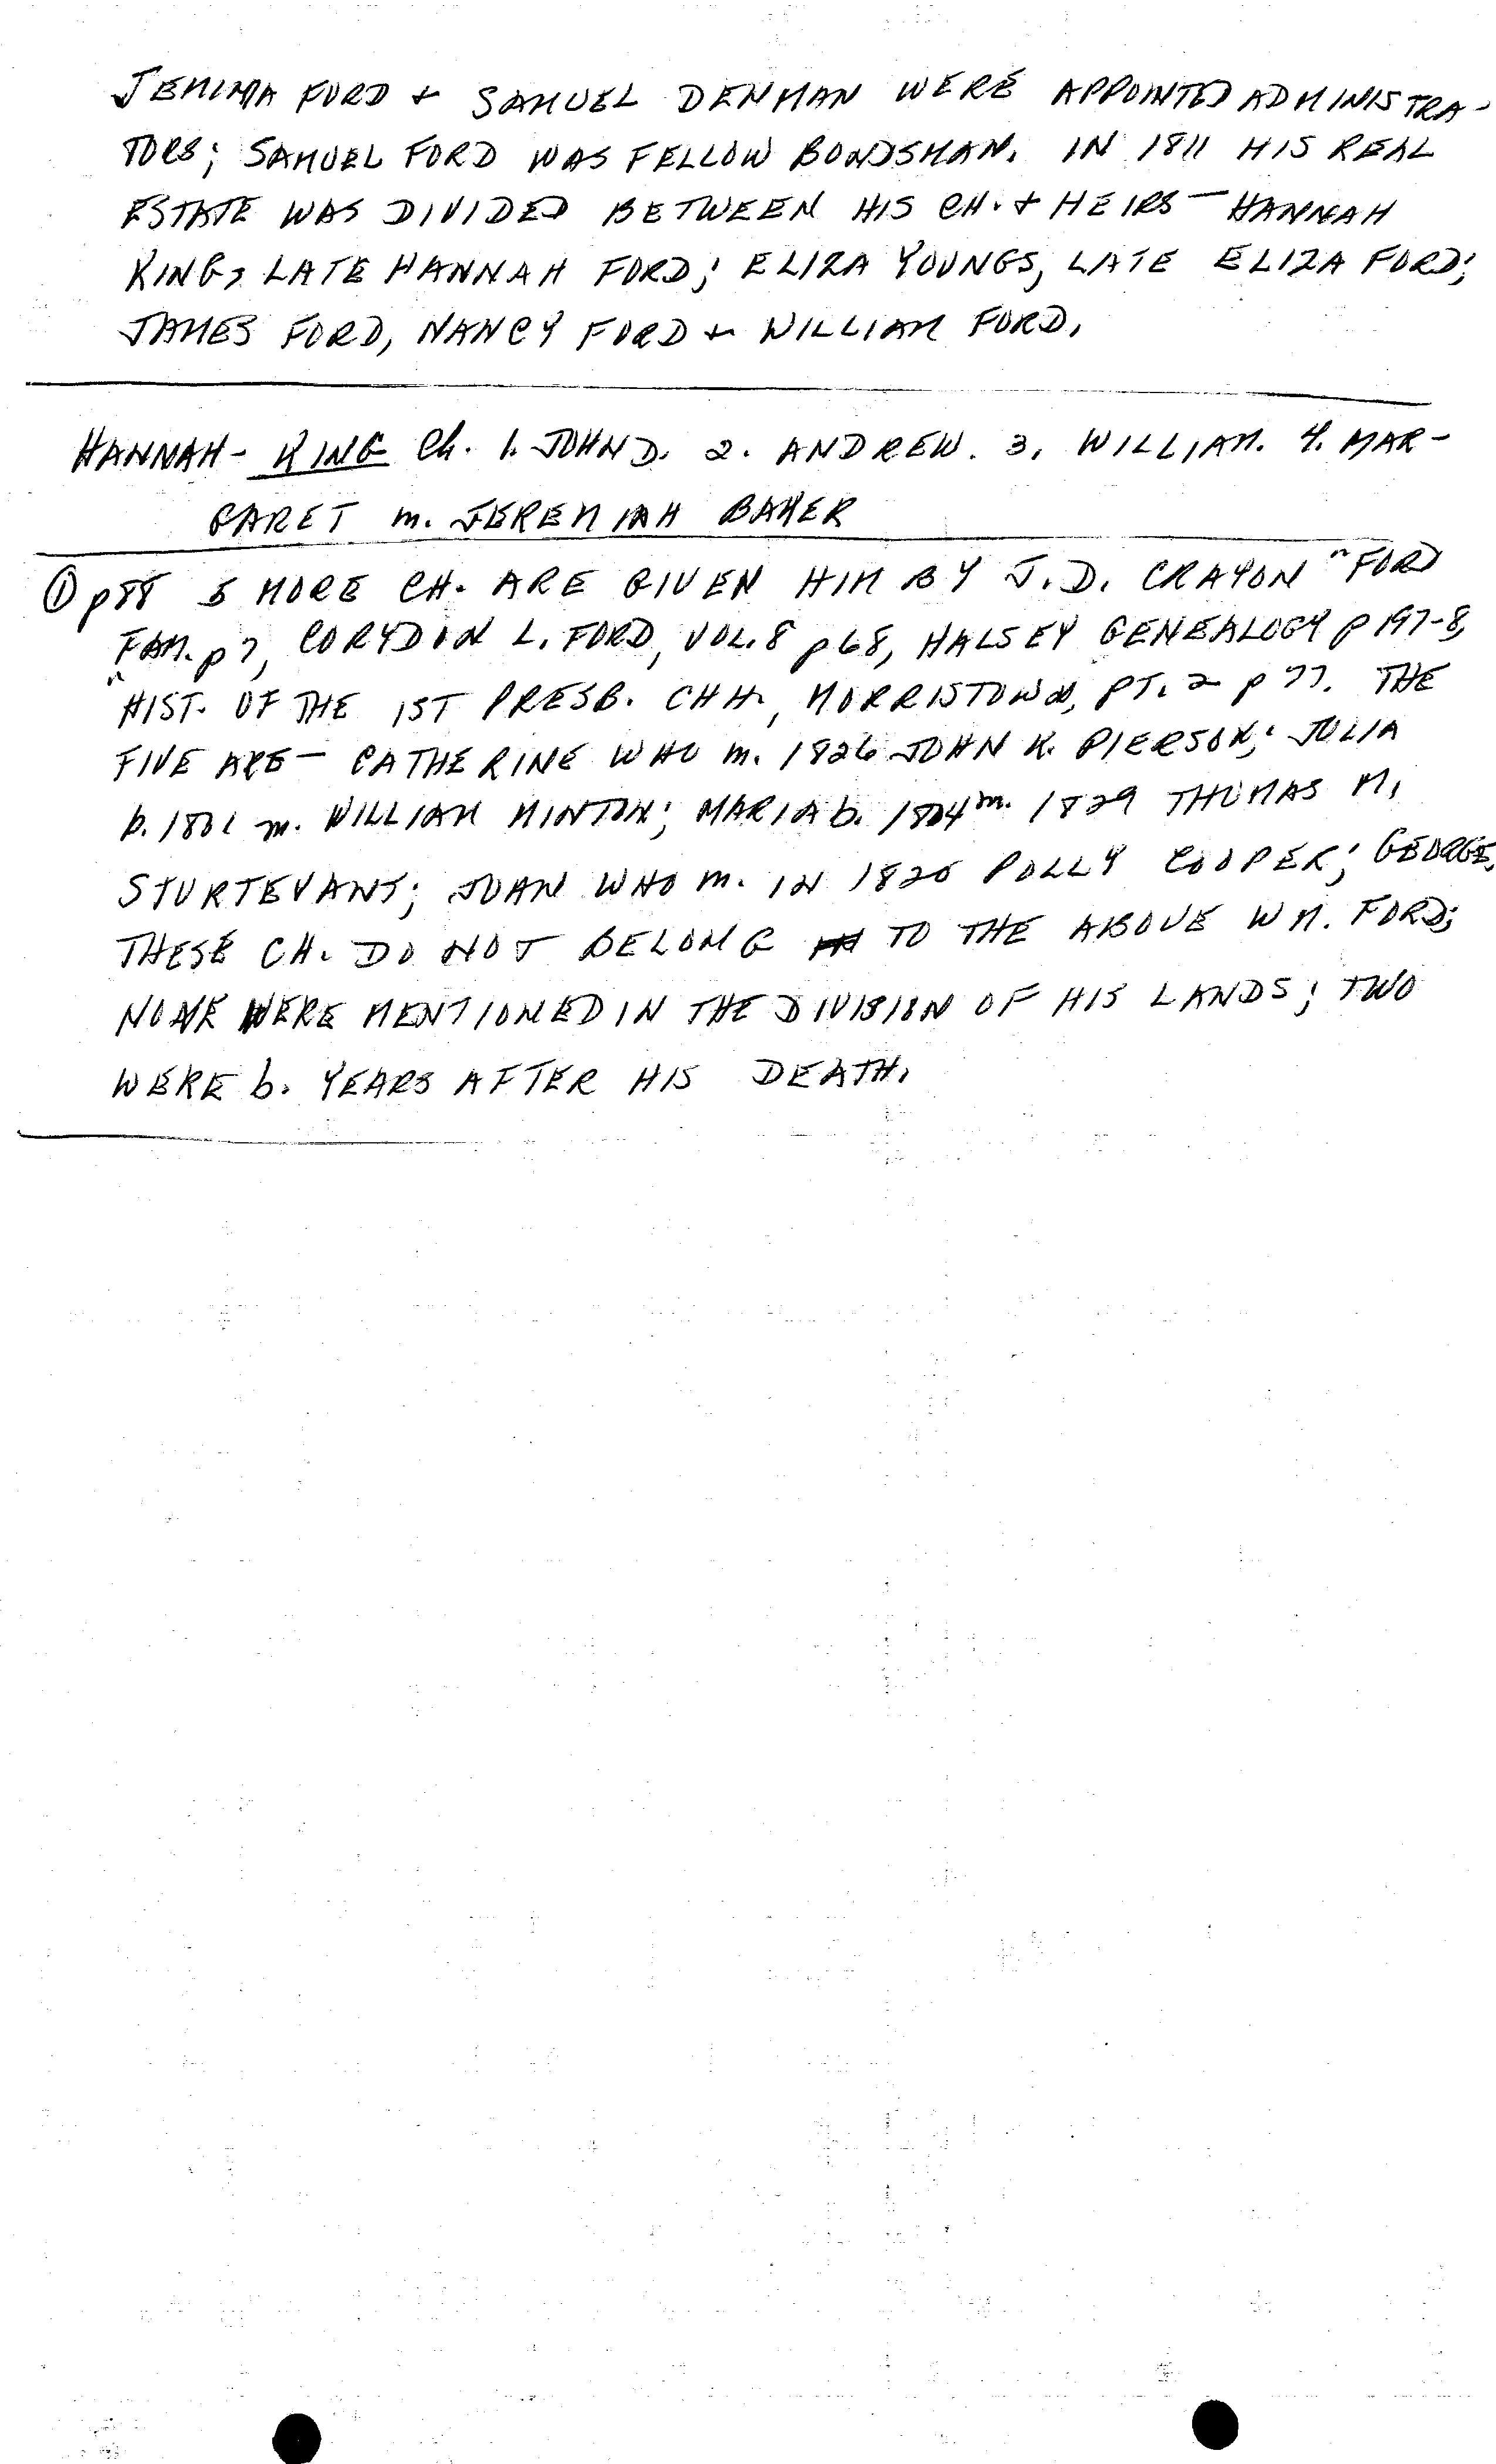 JEMIMA FORD + SAMUEL DENMAN WERE APPOINTED ADMINISTRA-
TORS; SAMUEL FORD WAS FELLOW BONDSMAN. IN 1811 HIS REAL
ESTATE WAS DIVIDED BETWEEN HIS CH. + HEIRS — HANNAH
KING, LATE HANNAH FORD; ELIZA YOUNGS, LATE ELIZA FORD;
JAMES FORD, NANCY FORD + WILLIAM FORD.
HANNAH - KING Ch. 1. JOHN D. 2. ANDREW. 3. WILLIAM. 4. MAR-
GARET m. JEREMIAH BAKER
① p88 5 MORE CH. ARE GIVEN HIM BY J.D. CRAYON "FORD
FAM. p7, CORYDON L. FORD, VOL. 8 p68, HALSEY GENEALOGY p 197-8,
"HIST. OF THE 1ST PRESB. CHH., MORRISTOWN, PT. 2 p 77. THE
FIVE ARE — CATHERINE WHO m. 1826 JOHN K. PIERSON; JULIA
b. 1801 m. WILLIAM MINTON; MARIA b. 1804 m. 1829 THOMAS M.
STURTEVANT; JOHN WHO m. IN 1820 POLLY COOPER; GEORGE.
THESE CH. DO NOT BELONG TO THE ABOVE WM. FORD;
NONE WERE MENTIONED IN THE DIVISION OF HIS LANDS; TWO
WERE b. YEARS AFTER HIS DEATH.